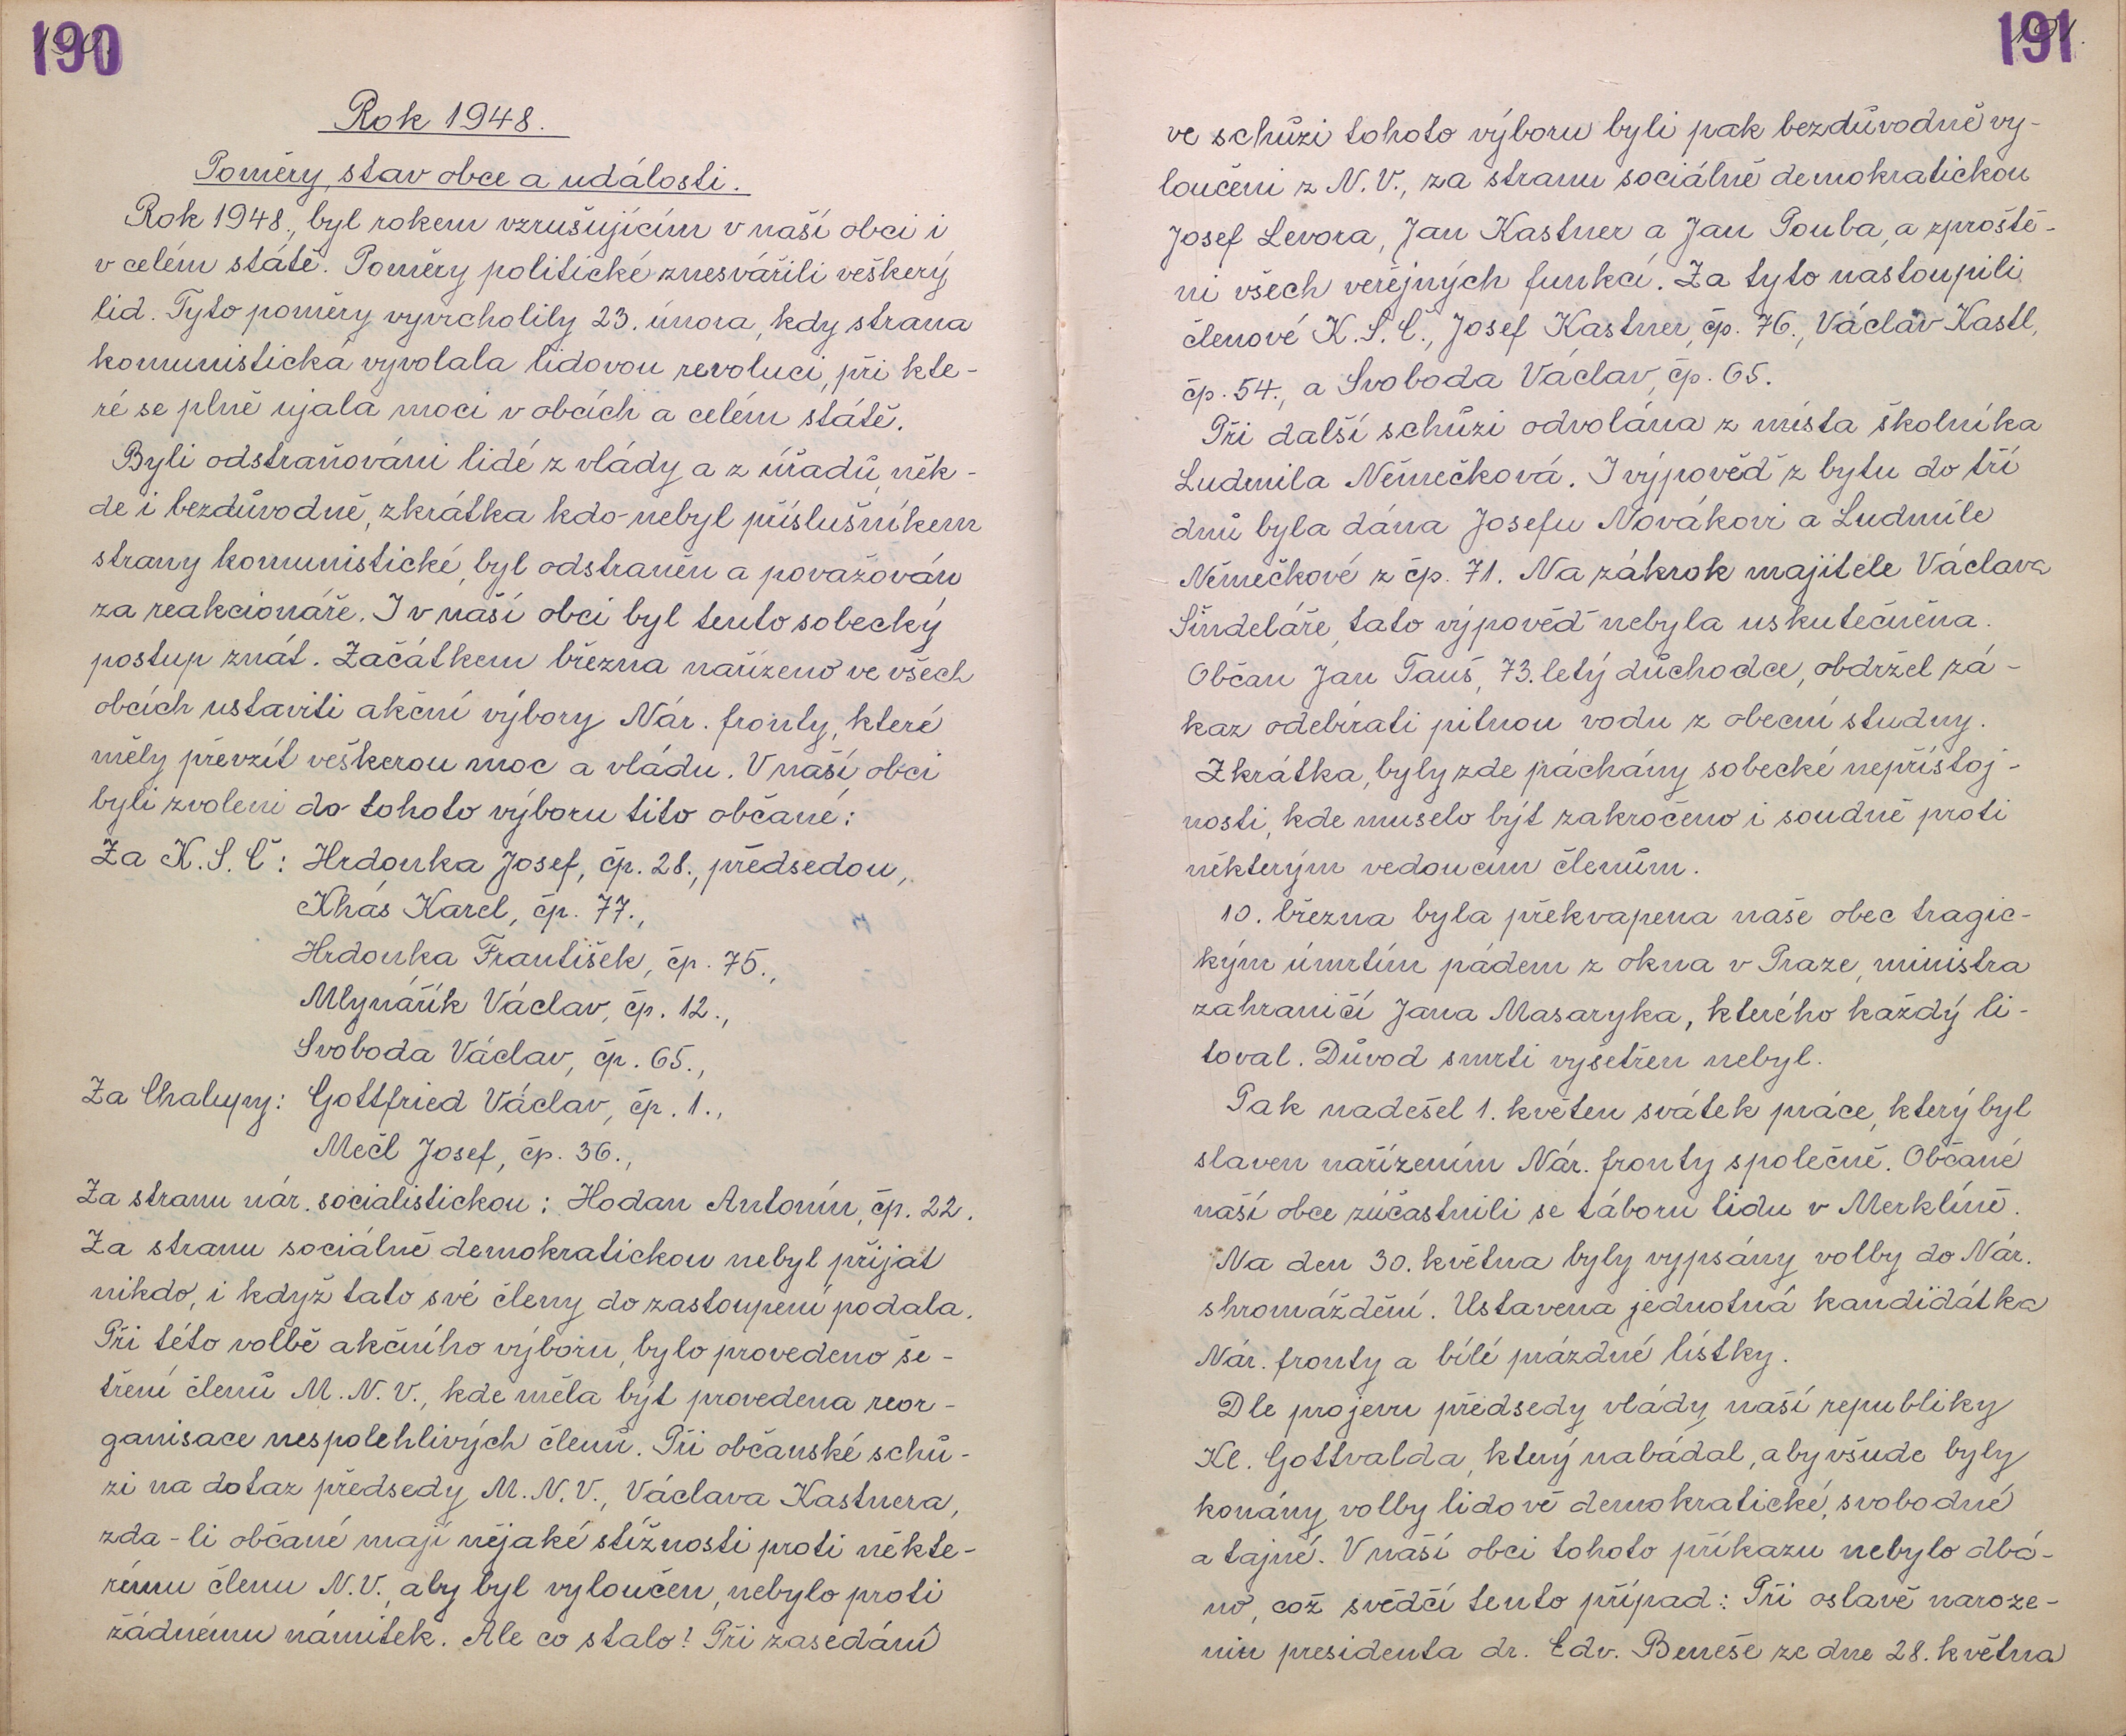 190
Rok 1948.
Poměry, stav obce a události.
Rok 1948., byl rokem vzrušujícím v naší obci i
v celém státě. Poměry politické znesvářili veškerý
lid. Tyto poměry vyvrcholily 23. února, kdy strana
komunistická vyvolala lidovou revoluci, při kte-
ré se plně ujala moci v obcích a celém státě.
Byli odstraňováni lidé z vlády a z úřadů, něk-
de i bezdůvodně, zkrátka kdo nebyl příslušníkem
strany komunistické, byl odstraněn a považován
za reakcionáře. I v naší obci byl tento sobecký
postup znát. Začátkem března nařízeno ve všech
obcích ustaviti akční výbory Nár. fronty, které
měly převzít veškerou moc a vládu. V naší obci
byli zvoleni do tohoto výboru tito občané:
Za K.S.Č: Hrdonka Josef, čp. 28., předsedou,
Khás Karel, čp. 77.,
Hrdonka František, čp. 75.,
Mlynářík Václav, čp. 12.,
Svoboda Václav, čp. 65.,
Za Chalupy: Gottfried Václav, čp. 1.,
Mečl Josef, čp. 36.,
Za stranu nár. socialistickou: Hodan Antonín, čp. 22.
Za stranu sociálně demokratickou nebyl přijat
nikdo, i když tato své členy do zastoupení podala.
Při této volbě akčního výboru, bylo provedeno še-
tření členů M.N.V., kde měla být provedena reor-
ganisace nespolehlivých členů. Při občanské schů-
zi na dotaz předsedy M.N.V., Václava Kastnera,
zda-li občané mají nějaké stížnosti proti někte-
rému členu N.V., aby byl vyloučen, nebylo proti
žádnému námitek. Ale co stalo? Při zasedání
191
ve schůzi tohoto výboru byli pak bezdůvodně vy-
loučeni z N.V., za stranu sociálně demokratickou
Josef Levora, Jan Kastner a Jan Pouba, a zproště-
ni všech veřejných funkcí. Za tyto nastoupili
členové K.S.Č., Josef Kastner, čp. 76., Václav Kastl,
čp. 54., a Svoboda Václav, čp. 65.
Při další schůzi odvolána z místa školníka
Ludmila Němečková. I výpověď z bytu do tří
dnů byla dána Josefu Novákovi a Ludmile
Němečkové z čp. 71. Na zákrok majitele Václava
Šindeláře, tato výpověď nebyla uskutečněna.
Občan Jan Tauš, 73.letý důchodce, obdržel zá-
kaz odebírati pitnou vodu z obecní studny.
Zkrátka, byly zde páchány sobecké nepřístoj-
nosti, kde muselo být zakročeno i soudně proti
některým vedoucím členům.
10. března byla překvapena naše obec tragic-
kým úmrtím pádem z okna v Praze, ministra
zahraničí Jana Masaryka, kterého každý li-
toval. Důvod smrti vyšetřen nebyl.
Pak nadešel 1. květen svátek práce, který byl
slaven nařízením Nár. fronty společně. Občané
naší obce zúčastnili se táboru lidu v Merklíně.
Na den 30. května byly vypsány volby do Nár.
shromáždění. Ustavena jednotná kandidátka
Nár. fronty a bílé prázdné lístky.
Dle projevu předsedy vlády naší republiky
Kl. Gottvalda, který nabádal, aby všude byly
konány volby lidově demokratické, svobodné
a tajné. V naší obci tohoto příkazu nebylo dbá-
no, což svědčí tento případ: Při oslavě naroze-
nin presidenta dr. Edv. Beneše ze dne 28. května